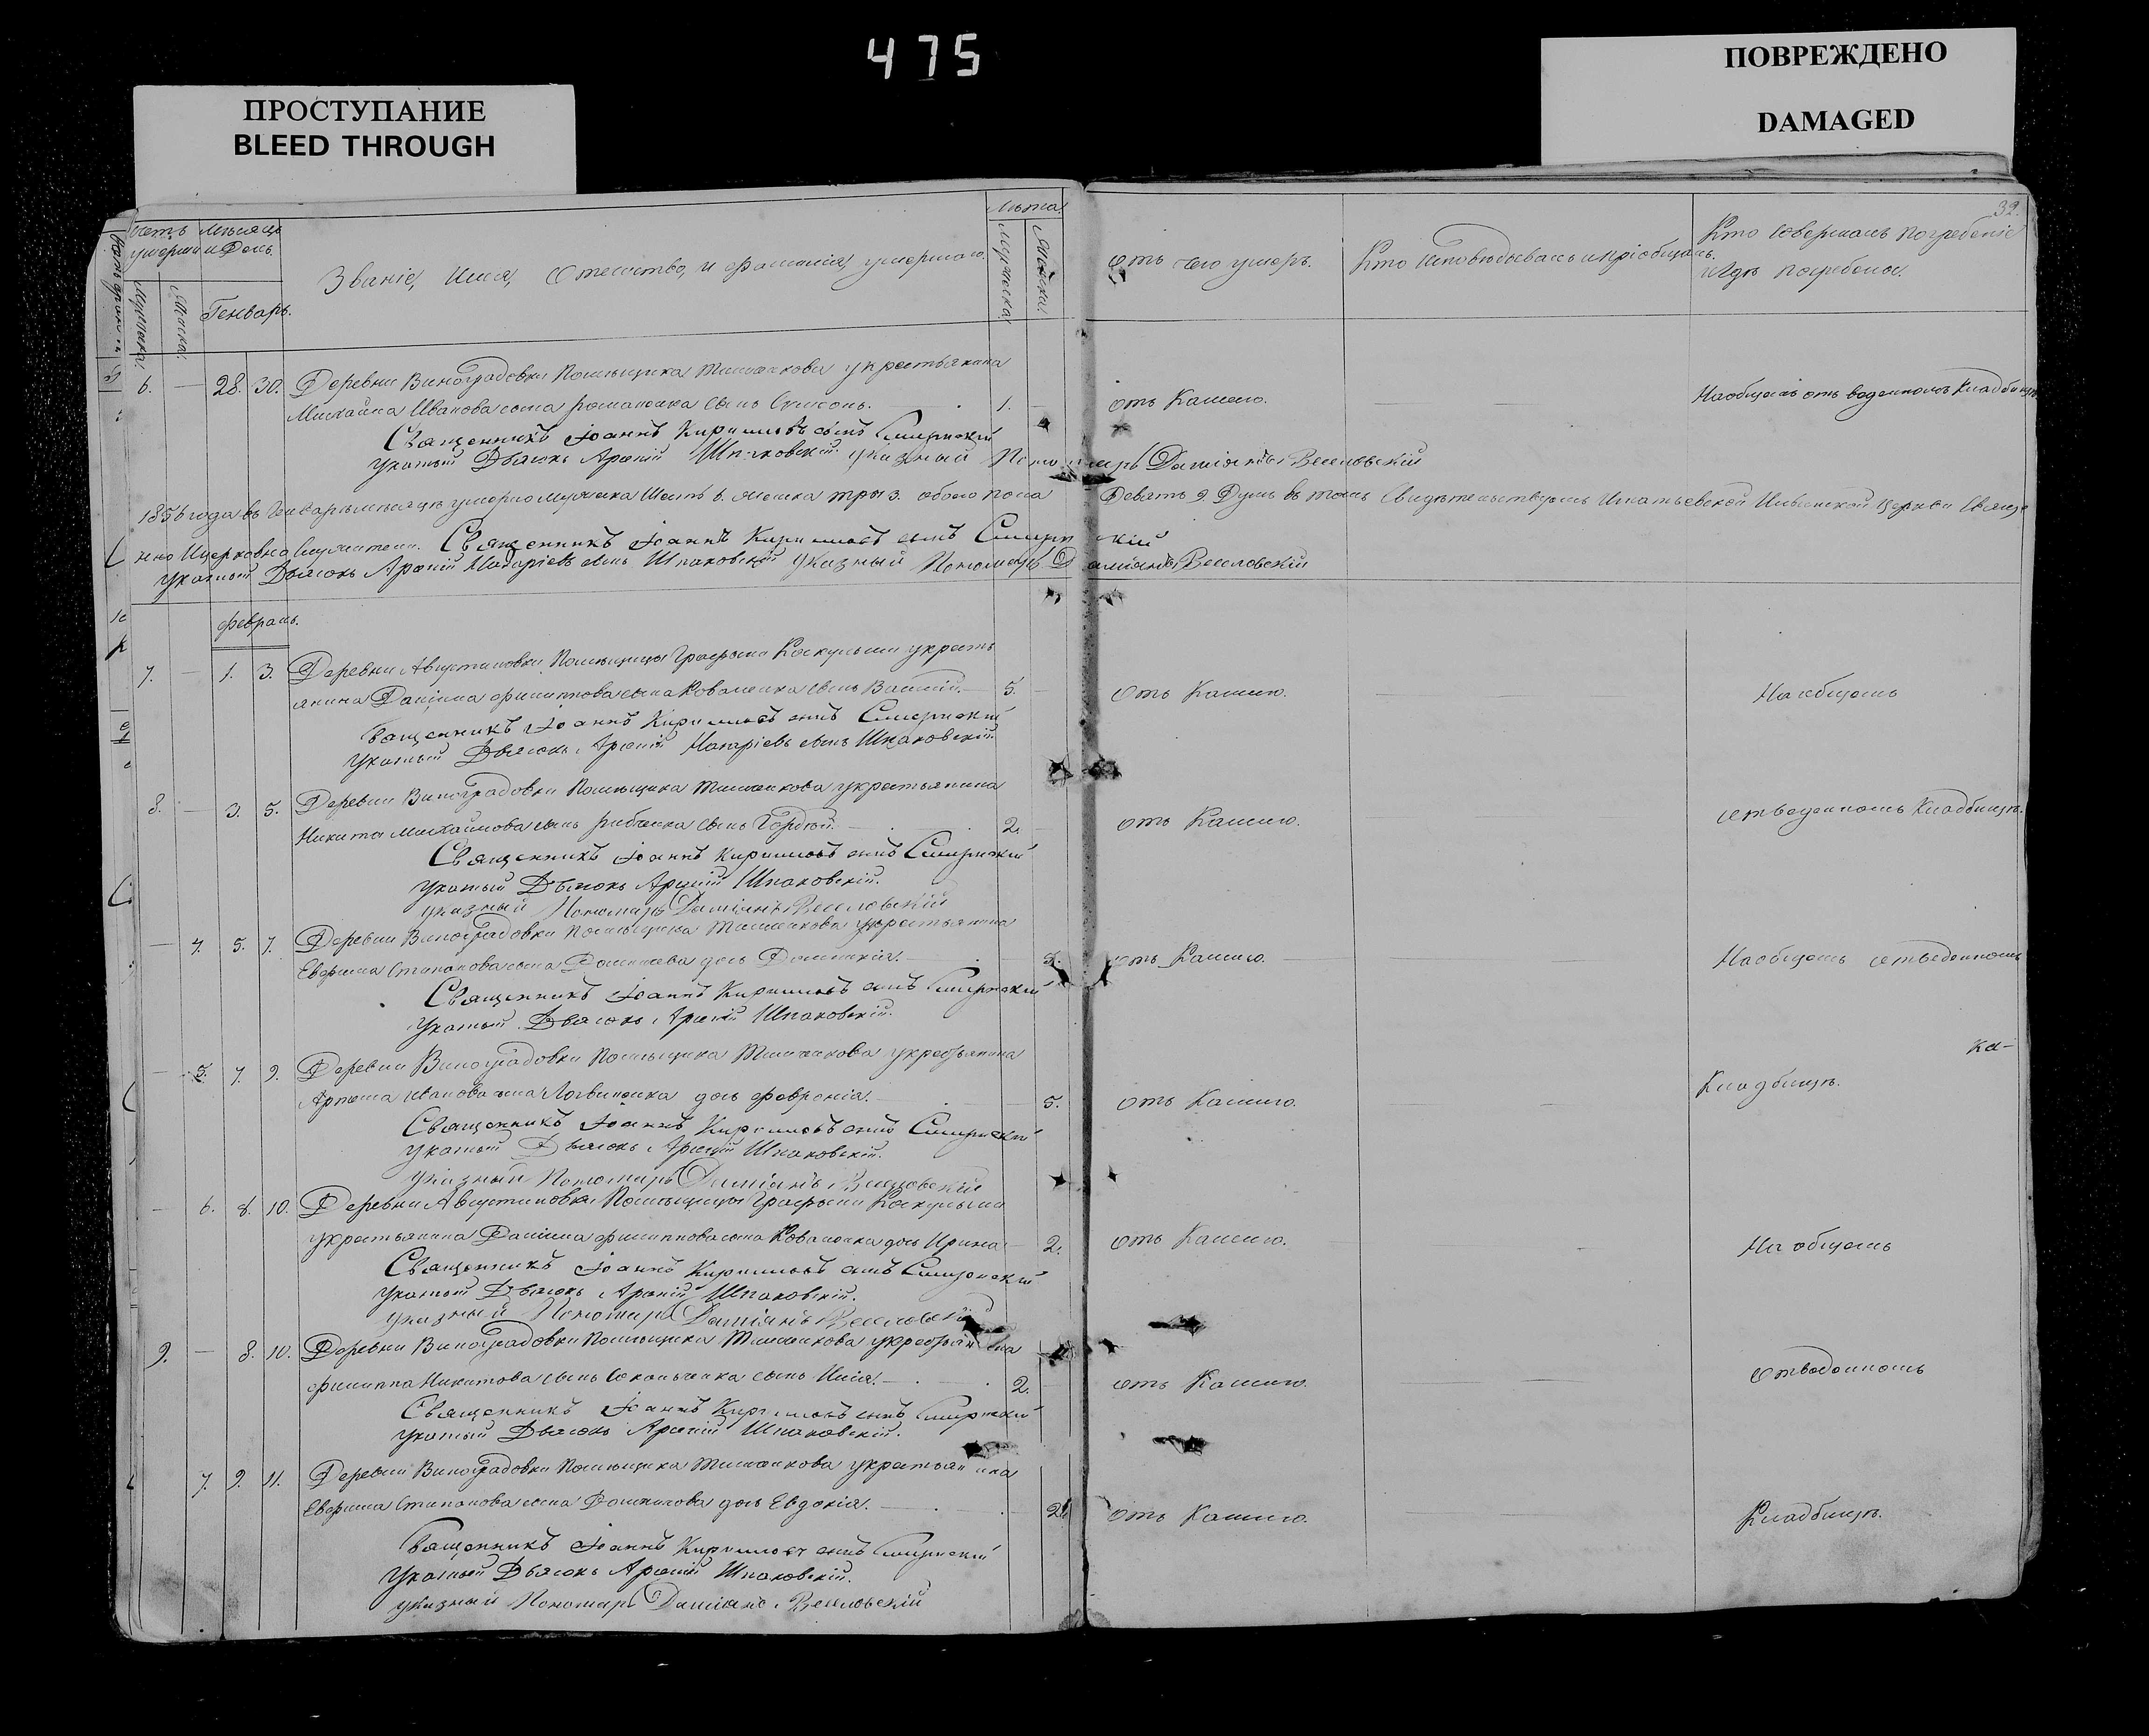 475
ПРОСТУПАНИЕ
BLEED THROUGH
ПОВРЕЖДЕНО
DAMAGED
32.
Счетъ умершихъ
Мѣсяцъ и День.
Званіе, Имя, Отечество, и фамилія, умершаго.
Лѣта
Мужеска
Женска
Генварь.
отъ чего умеръ.
Кто исповѣдывалъ и пріобщалъ.
Кто совершалъ погребеніе
и гдѣ погребены.
6. — 28. 30. Деревни Виноградовки Помѣщика укрестьянина
Михайла Иванова сына Романенка сынъ Симеонъ. 1. отъ Кашлю. Наобщемъ отъведенномъ Кладбищѣ
Священникъ Іоаннъ Кирилловъ сынъ
указный Дьячокъ Арсеній Шпаковскій указный Пономарь Даміянъ Веселовскій
1856 года въ Генварѣ мѣсяцѣ умерло мужеска Шесть 6. женска три 3. обоего пола Девять 9 Душъ въ томъ Свидѣтельствуемъ церкви Свяще
нно Церковно Служители. Священникъ Іоаннъ Кирилловъ сынъ
указный Дьячокъ Арсеній Макаріевъ сынъ Шпаковскій указный Пономарь Даміянъ Веселовскій
февраль.
7. — 1. 3. Деревни Августиновки Помѣщицы Графини укресть
янина Даніила Филиппова сына Коваленка сынъ Василій. 5. отъ Кашлю. На общемъ
Священникъ Іоаннъ Кирилловъ сынъ
указный Дьячокъ Арсеній Макаріевъ сынъ Шпаковскій.
8. — 3. 5. Деревни Виноградовки Помѣщика укрестьянина
Никита Михайлова сынъ сынъ Гордѣй. 2. отъ Кашлю. отведенномъ Кладбищѣ.
Священникъ Іоаннъ Кирилловъ сынъ
указный Дьячокъ Арсеній Шпаковскій.
указный Пономарь Даміянъ Веселовскій
— 4. 5. 7. Деревни Виноградовки Помѣщика укрестьянина
Евфима Степанова сына дочь Домникія. отъ Кашлю. Наобщемъ отведенномъ
Священникъ Іоаннъ Кирилловъ сынъ
указный Дьячокъ Арсеній Шпаковскій.
— 5. 7. 9. Деревни Виноградовки Помѣщика укрестьянина
Артема Иванова сына Логвиненка дочь Февронія. 5. отъ Кашлю. Кладбищѣ.
Священникъ Іоаннъ Кирилловъ сынъ
указный Дьячокъ Арсеній Шпаковскій.
указный Пономарь Даміянъ Веселовскій
— 6. 8. 10. Деревни Августиновки Помѣщицы Графини
укрестьянина Даніила Филиппова сына Коваленка дочь Ирина 2. отъ Кашлю. На общемъ
Священникъ Іоаннъ Кирилловъ сынъ
указный Дьячокъ Арсеній Шпаковскій.
указный Пономарь Даміянъ Веселовскій
9. — 8. 10. Деревни Виноградовки Помѣщика укрестьянина
Филиппа Никитова сынъ сынъ Илія. 2. отъ Кашлю. отведенномъ
Священникъ Іоаннъ Кирилловъ сынъ
указный Дьячокъ Арсеній Шпаковскій.
7. 9. 11. Деревни Виноградовки Помѣщика укрестьянина
Евфима Степанова сына дочь Евдокія. 2. отъ Кашлю. Кладбищѣ.
Священникъ Іоаннъ Кирилловъ сынъ
указный Дьячокъ Арсеній Шпаковскій.
указный Пономарь Даміянъ Веселовскій